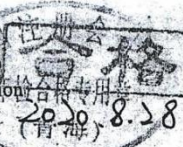 注册会
合格
检合格专用章
2020.8.28
(青海)